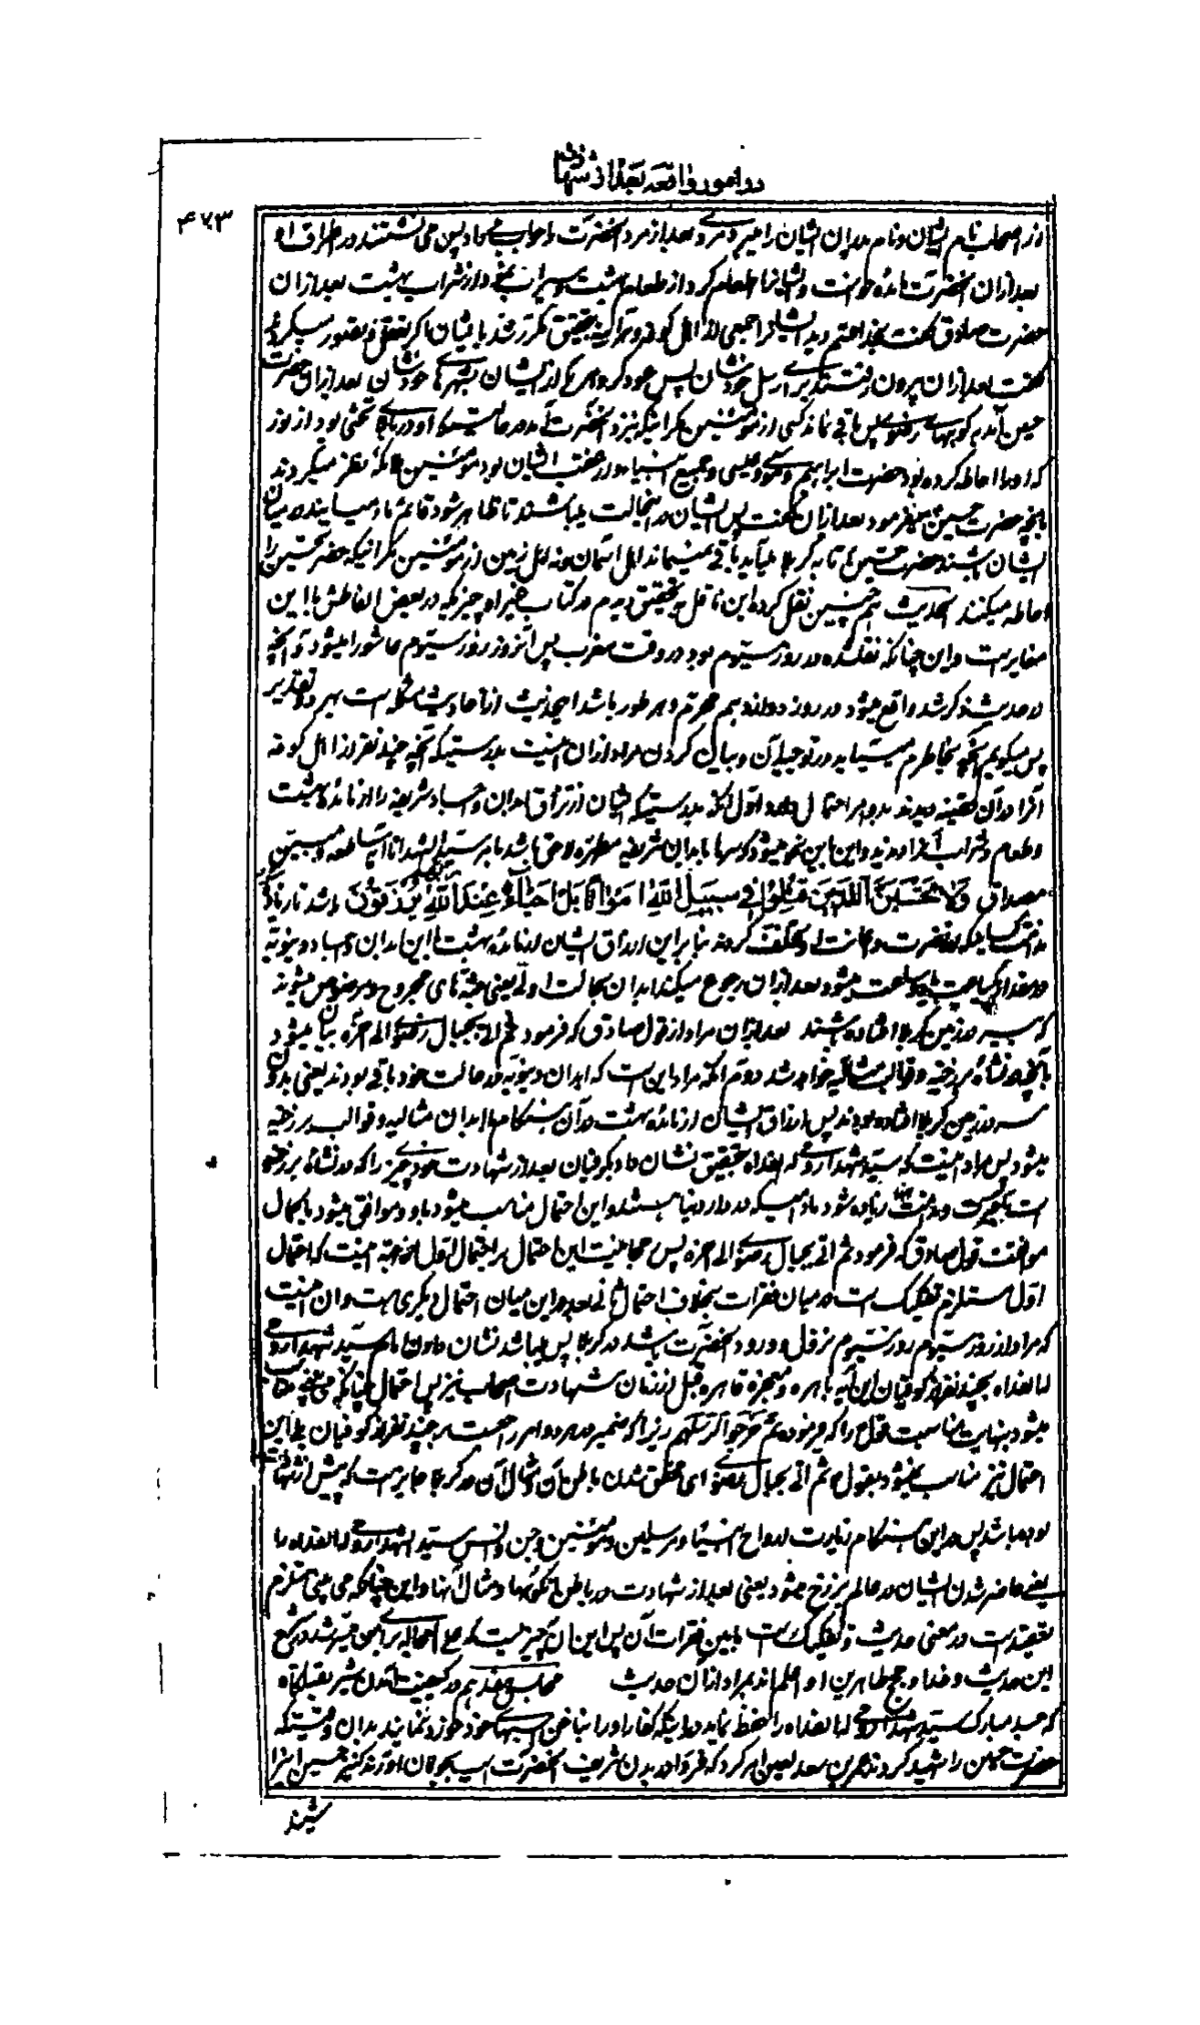 در امور واقعه بعد از شهادت
۴۷۳
از اصحاب نام ایشان و نام پدران ایشان را میبرد مرد بعد از مرد آنحضرت را جواب میداد پس می نشستند در اطراف او
بعد از آن آنحضرت مائده خواست و ایشانرا طعام کرد از طعام بهشت و سیراب نمود از شراب بهشت بعد از آن
حضرت صادق گفت بخدا قسم دید ایشانرا جمعی از اهل کوفه و هر آینه بتحقیق مکرر شد بایشان اگر تعقل
گفت بعد از آن بیرون رفتند برای ارسل خودشان پس عود کرد هر یک از ایشان بشهرهای خودشان بعد از آن حضرت
حسین آمد بکوههای رضوی پس باقی نماند کسی از مؤمنین مگر اینکه نزد آنحضرت آمد در حالتیکه او در بالای تختی بود از نور
که او را احاطه کرده بود حضرت ابراهیم و موسی و عیسی و جمیع انبیاء و از عقب ایشان بود مؤمنین ملائکه نظر میکردند
بآنچه حضرت حسین میفرمود بعد از آن گفت پس ایشان در اینحالت میباشند تا ظاهر شود قائم
ایشان باشند و حضرت حسین تا به کربلا میآید باقی نمیماند اهل آسمان و نه اهل زمین از مؤمنین مگر اینکه حضرت حسین را
احاطه میکنند الحدیث هم چنین نقل کرده این ناقل و بتحقیق دیدم در کتاب غیر او چیزیکه در بعض الفاظش با این
مغایرست و این چنانکه نقل شده در روز سیّوم بود در وقت مغرب پس آنروز روز سیّوم عاشورا میشود و آنچه
در حدیث ذکر شد واقع میشود در روز دوازدهم محرّم و هر طور باشد اینحدیث از احادیث مشکله است بهر دو تقدیر
پس میگویم آنچه بخاطرم میآید در توجیه آن و بیان کردن مراد از آن اینست بدرستیکه آنچه چند نفر از اهل کوفه
آنرا در آن قضیه دیدند بدو امر احتمال دارد اول آنکه بدرستیکه ایشان ارتزاق ابدان و اجساد شریفه را از مائده بهشت
و طعام و شراب آنرا دیدند و این باین نحو میشود که سرها بابدان شریفه مطهره ملحق باشد تا بر سید الشهدا آیه ساطعه و مبین
مصداق وَلَا تَحْسَبَنَّ الَّذِينَ قُتِلُوا فِي سَبِيلِ اللَّهِ أَمْوَاتًا بَلْ أَحْيَاءٌ عِنْدَ رَبِّهِمْ يُرْزَقُونَ باشد
کسانیکه از نصرت و اعانت او تخلف کردند بنا بر این ارتزاق ایشان از مائده بهشت با این ابدان و اجساد دنیویه
در مقدار یک ساعت میشود بعد از آن رجوع میکند ابدان بحالت اولی یعنی جثه های مجروح و مرضوض میشوند
که بی سر در زمین کربلا افتاده باشند بعد از آن مراد از قول صادق که فرمود ثم اتی بجبال رضوی الی آخره بیان میشود
بآنچه در نشاه برزخیه و قوالب مثالیه خواهد شد دوم آنکه مراد این است که ابدان دنیویه در حالت خود باقی بودند یعنی بدون
سر در زمین کربلا افتاده بودند پس ارتزاق ایشان از مائده بهشت در آن هنگام با ابدان مثالیه و قوالب برزخیه
میشود پس مراد اینست که سید الشهدا روحی له الفداه بتحقیق نشان داد بکوفیان بعد از شهادت خود چیزی را که در نشاه برزخیه
است مادامیکه در دار دنیا هستند و این احتمال مناسب میشود و موافق میشود بکمال
موافقت قول صادق که فرمود ثم اتی بجبال رضوی الی آخره پس محاسنیت این احتمال بر احتمال اول از جهة اینست که احتمال
اول مستلزم تفکیک است در میان فقرات بخلاف احتمال ثانی بعد در این میان احتمال دیگری هست و آن اینست
که مراد از روز سیّوم روز سیّوم نزول و ورود آنحضرت باشد در کربلا پس میباشد نشان دادن امام سید الشهدا روحی
له الفداه بچند نفر از کوفیان این آیه باهره و معجزه قاهره قبل از زمان شهادت اصحاب نیز پس احتمال چنانکه می بینی مناسب
میشود بنهایت مناسبت قول را که فرموده ثم خرجوا لرسلهم زیرا که ضمیر در هر دو امر راجعست بر چند نفر از کوفیان و این
احتمال نیز مناسب میشود بقول ثم اتی بجبال رضوی ای محقق شدن باطن آن و مثال آن در کربلا جایزست که پیش از شهادت
بوده باشد پس در این هنگام زیارت ارواح انبیاء و مرسلین و مؤمنین و جن و انس سید الشهدا روحی له الفداه را
یعنی حاضر شدن ایشان در عالم برزخ میشود یعنی بعد از شهادت در باطن آنکوهها و مثال آنها و این چنانکه می بینی مستلزم
تعقیدست در معنی حدیث و تفکیک است مابین فقرات آن پس این آن چیزیست که علی العجاله برای من میسر شد در شرح
این حدیث و خدا و حجج طاهرین او اعلم اند بمراد از آن حدیث مجلس هفدهم در کیفیت آمدن شیر بقتلگاه
که جسد مبارک سید الشهدا روحی له الفداه را حفظ نماید در اینکه کفار او را بناخن اسبهای خود خورد نمایند بدان وقتیکه
حضرت حسین را شهید کردند عمر بن سعد لعین امر کرد که فردا در بدن شریف آنحضرت اسب بجولان آورند کنیز حسین اینرا
شنید